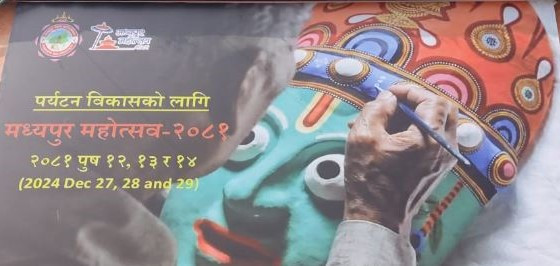 पर्यटन विकासको लागि
मध्यपुर महोत्सव-२०८१
२०८१ पुष १२, १३ र १४
(2024 Dec 27, 28 and 29)